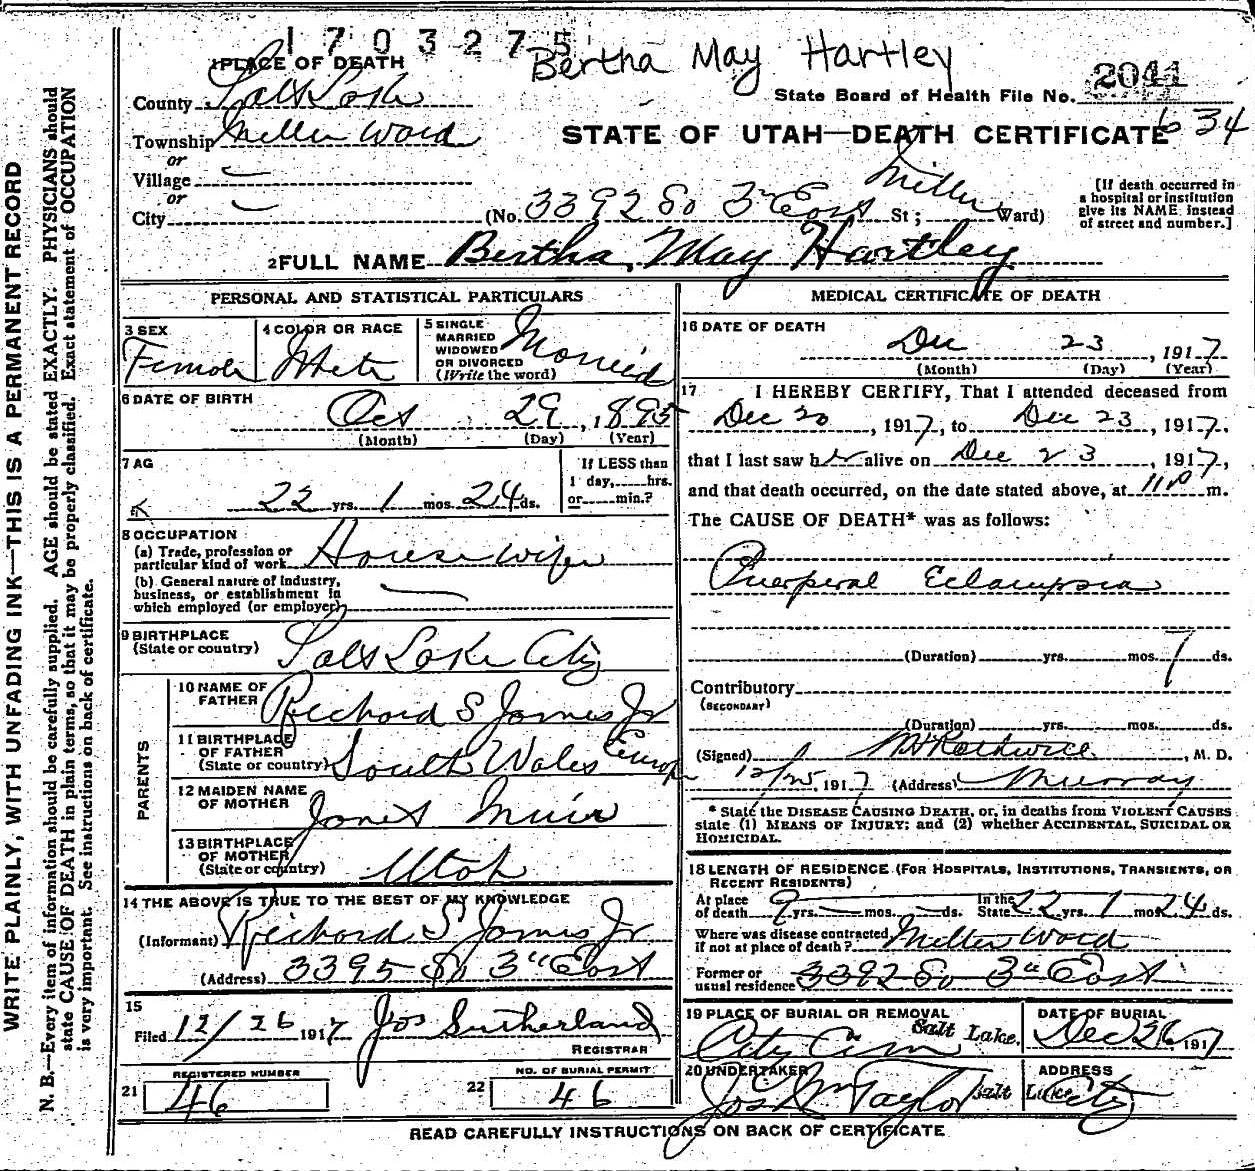 1 7 0 3 2 7 5
Bertha May Hartley
1 PLACE OF DEATH
2041
County Salt Lake
State Board of Health File No.
Township Miller Ward
STATE OF UTAH—DEATH CERTIFICATE
634
or
Village
or
City (No. 3392 So 3rd East St; Miller Ward)
[If death occurred in
a hospital or institution
give its NAME instead
of street and number.]
2 FULL NAME Bertha, May Hartley
PERSONAL AND STATISTICAL PARTICULARS
3 SEX
Female
4 COLOR OR RACE
White
5 SINGLE
MARRIED
WIDOWED
OR DIVORCED
(Write the word)
Married
6 DATE OF BIRTH
Oct 29, 1895
(Month) (Day) (Year)
7 AG
22 yrs. 1 mos. 24 ds.
If LESS than
1 day, hrs.
or min.?
8 OCCUPATION
(a) Trade, profession or
particular kind of work House wife
(b) General nature of industry,
business, or establishment in
which employed (or employer)
9 BIRTHPLACE
(State or country) Salt Lake City
PARENTS
10 NAME OF
FATHER Richard S James Jr
11 BIRTHPLACE
OF FATHER
(State or country) South Wales Europe
12 MAIDEN NAME
OF MOTHER Janet Muir
13 BIRTHPLACE
OF MOTHER
(State or country) Utah
14 THE ABOVE IS TRUE TO THE BEST OF MY KNOWLEDGE
(Informant) Richard S James Jr
(Address) 3395 So 3rd East
15
Filed 12/26 1917 Jos Sutherland
REGISTRAR
21 REGISTERED NUMBER
46
22 NO. OF BURIAL PERMIT
46
MEDICAL CERTIFICATE OF DEATH
16 DATE OF DEATH
Dec 23, 1917
(Month) (Day) (Year)
17 I HEREBY CERTIFY, That I attended deceased from
Dec 20, 1917, to Dec 23, 1917,
that I last saw her alive on Dec 23, 1917,
and that death occurred, on the date stated above, at 11 P m.
The CAUSE OF DEATH* was as follows:
Puerperal Eclampsia
(Duration) yrs. mos. 7 ds.
Contributory
(SECONDARY)
(Duration) yrs. mos. ds.
(Signed) , M. D.
12/25, 1917 (Address) Murray
* State the DISEASE CAUSING DEATH, or, in deaths from VIOLENT CAUSES
state (1) MEANS OF INJURY; and (2) whether ACCIDENTAL, SUICIDAL OR
HOMICIDAL.
18 LENGTH OF RESIDENCE (FOR HOSPITALS, INSTITUTIONS, TRANSIENTS, OR
RECENT RESIDENTS)
At place
of death 9 yrs. — mos. — ds.
In the
State 22 yrs. 1 mos. 24 ds.
Where was disease contracted,
if not at place of death? Miller Ward
Former or
usual residence 3392 So 3rd East
19 PLACE OF BURIAL OR REMOVAL
City Cem Salt Lake.
DATE OF BURIAL
Dec 26, 1917
20 UNDERTAKER
Jos Wm Taylor
ADDRESS
Salt Lake City
READ CAREFULLY INSTRUCTIONS ON BACK OF CERTIFICATE
WRITE PLAINLY, WITH UNFADING INK—THIS IS A PERMANENT RECORD
N. B.—Every item of information should be carefully supplied. AGE should be stated EXACTLY. PHYSICIANS should
state CAUSE OF DEATH in plain terms, so that it may be properly classified. Exact statement of OCCUPATION
is very important. See instructions on back of certificate.